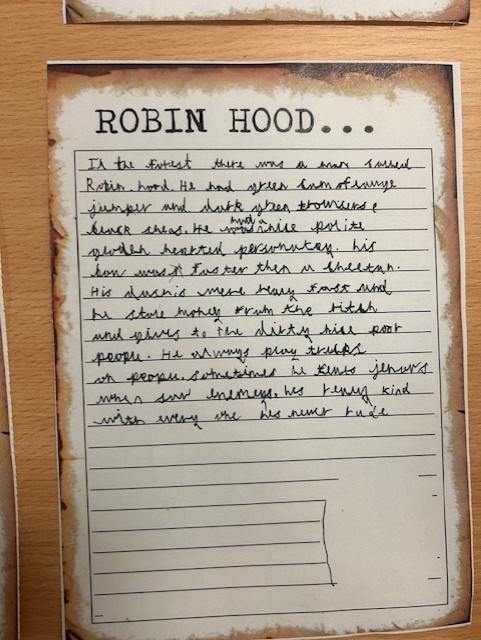 ROBIN HOOD...
In the forest there was a man called
Robin hood. He had green
jumper and dark green trousers &
black shoes. He had a nise polite
golden hearted personutay. his
bow was faster then a cheetah.
His dushis were heavy fast and
he stole money from the ritch
and gives to the dirty nise poor
people. He always play tricks
on people. sometimes he
when saw enemeys. hes realy kind
with every one hes never rude